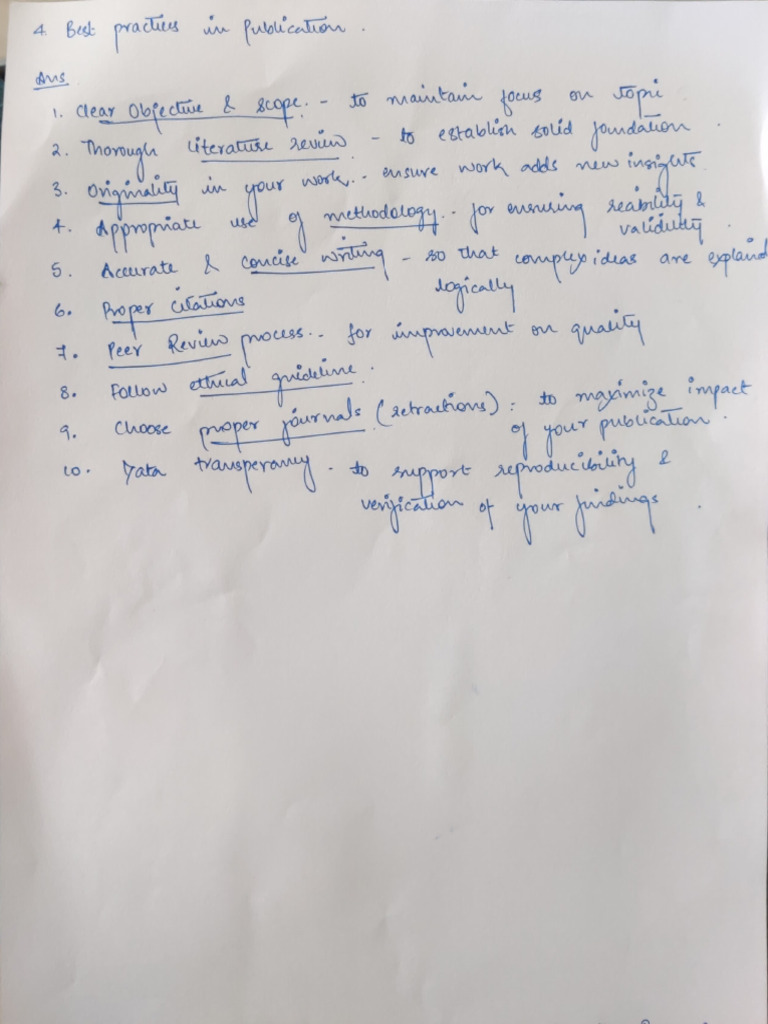 4. Best practices in Publication.
Ans
1. Clear Objective & scope. - to maintain focus on topic
2. Thorough literature review - to establish solid foundation.
3. Originality in your work. - ensure work adds new insights
4. Appropriate use of methodology. - for ensuring reability &
validity.
5. Accurate & concise writing - so that complex ideas are explaind
logically
6. Proper citations
7. Peer Review process. - for improvement on quality
8. Follow ethical guideline.
9. Choose proper journals (retractions): to maximize impact
of your publication.
10. Data transperancy. to support reproducibility &
verification of your findings.